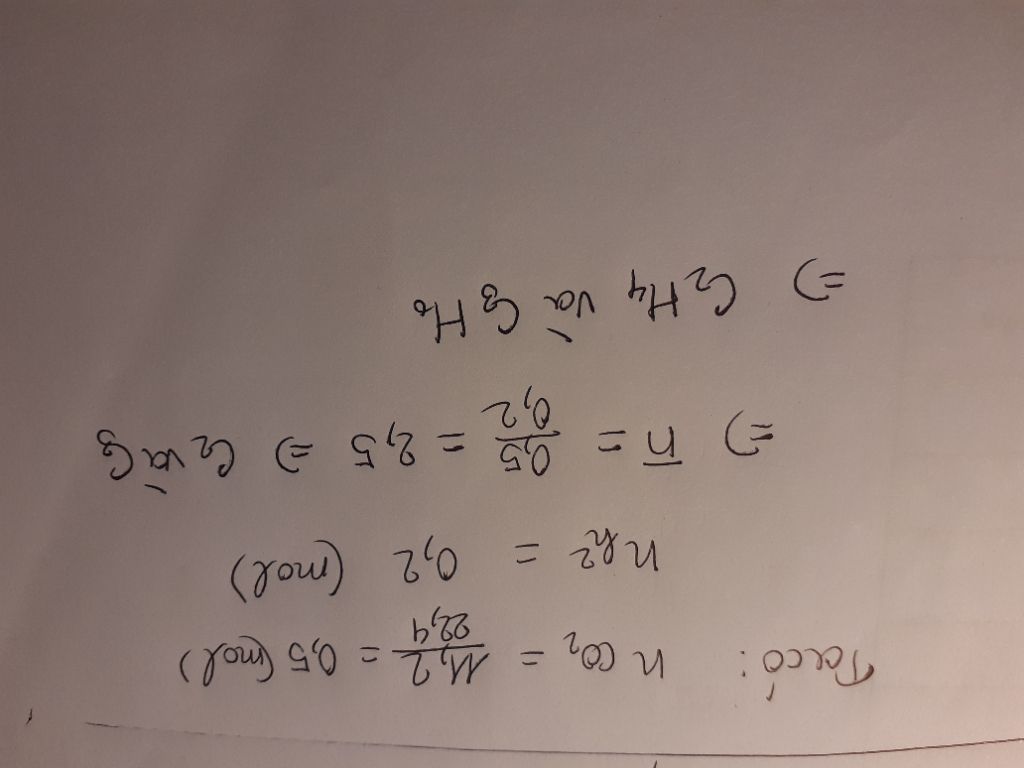 Ta có: nCO₂ = 11,2/22,4 = 0,5 (mol)
n h² = 0,2 (mol)
=> n̅ = 0,5/0,2 = 2,5 => C₂ và C₃
=> C₂H₄ và C₃H₆